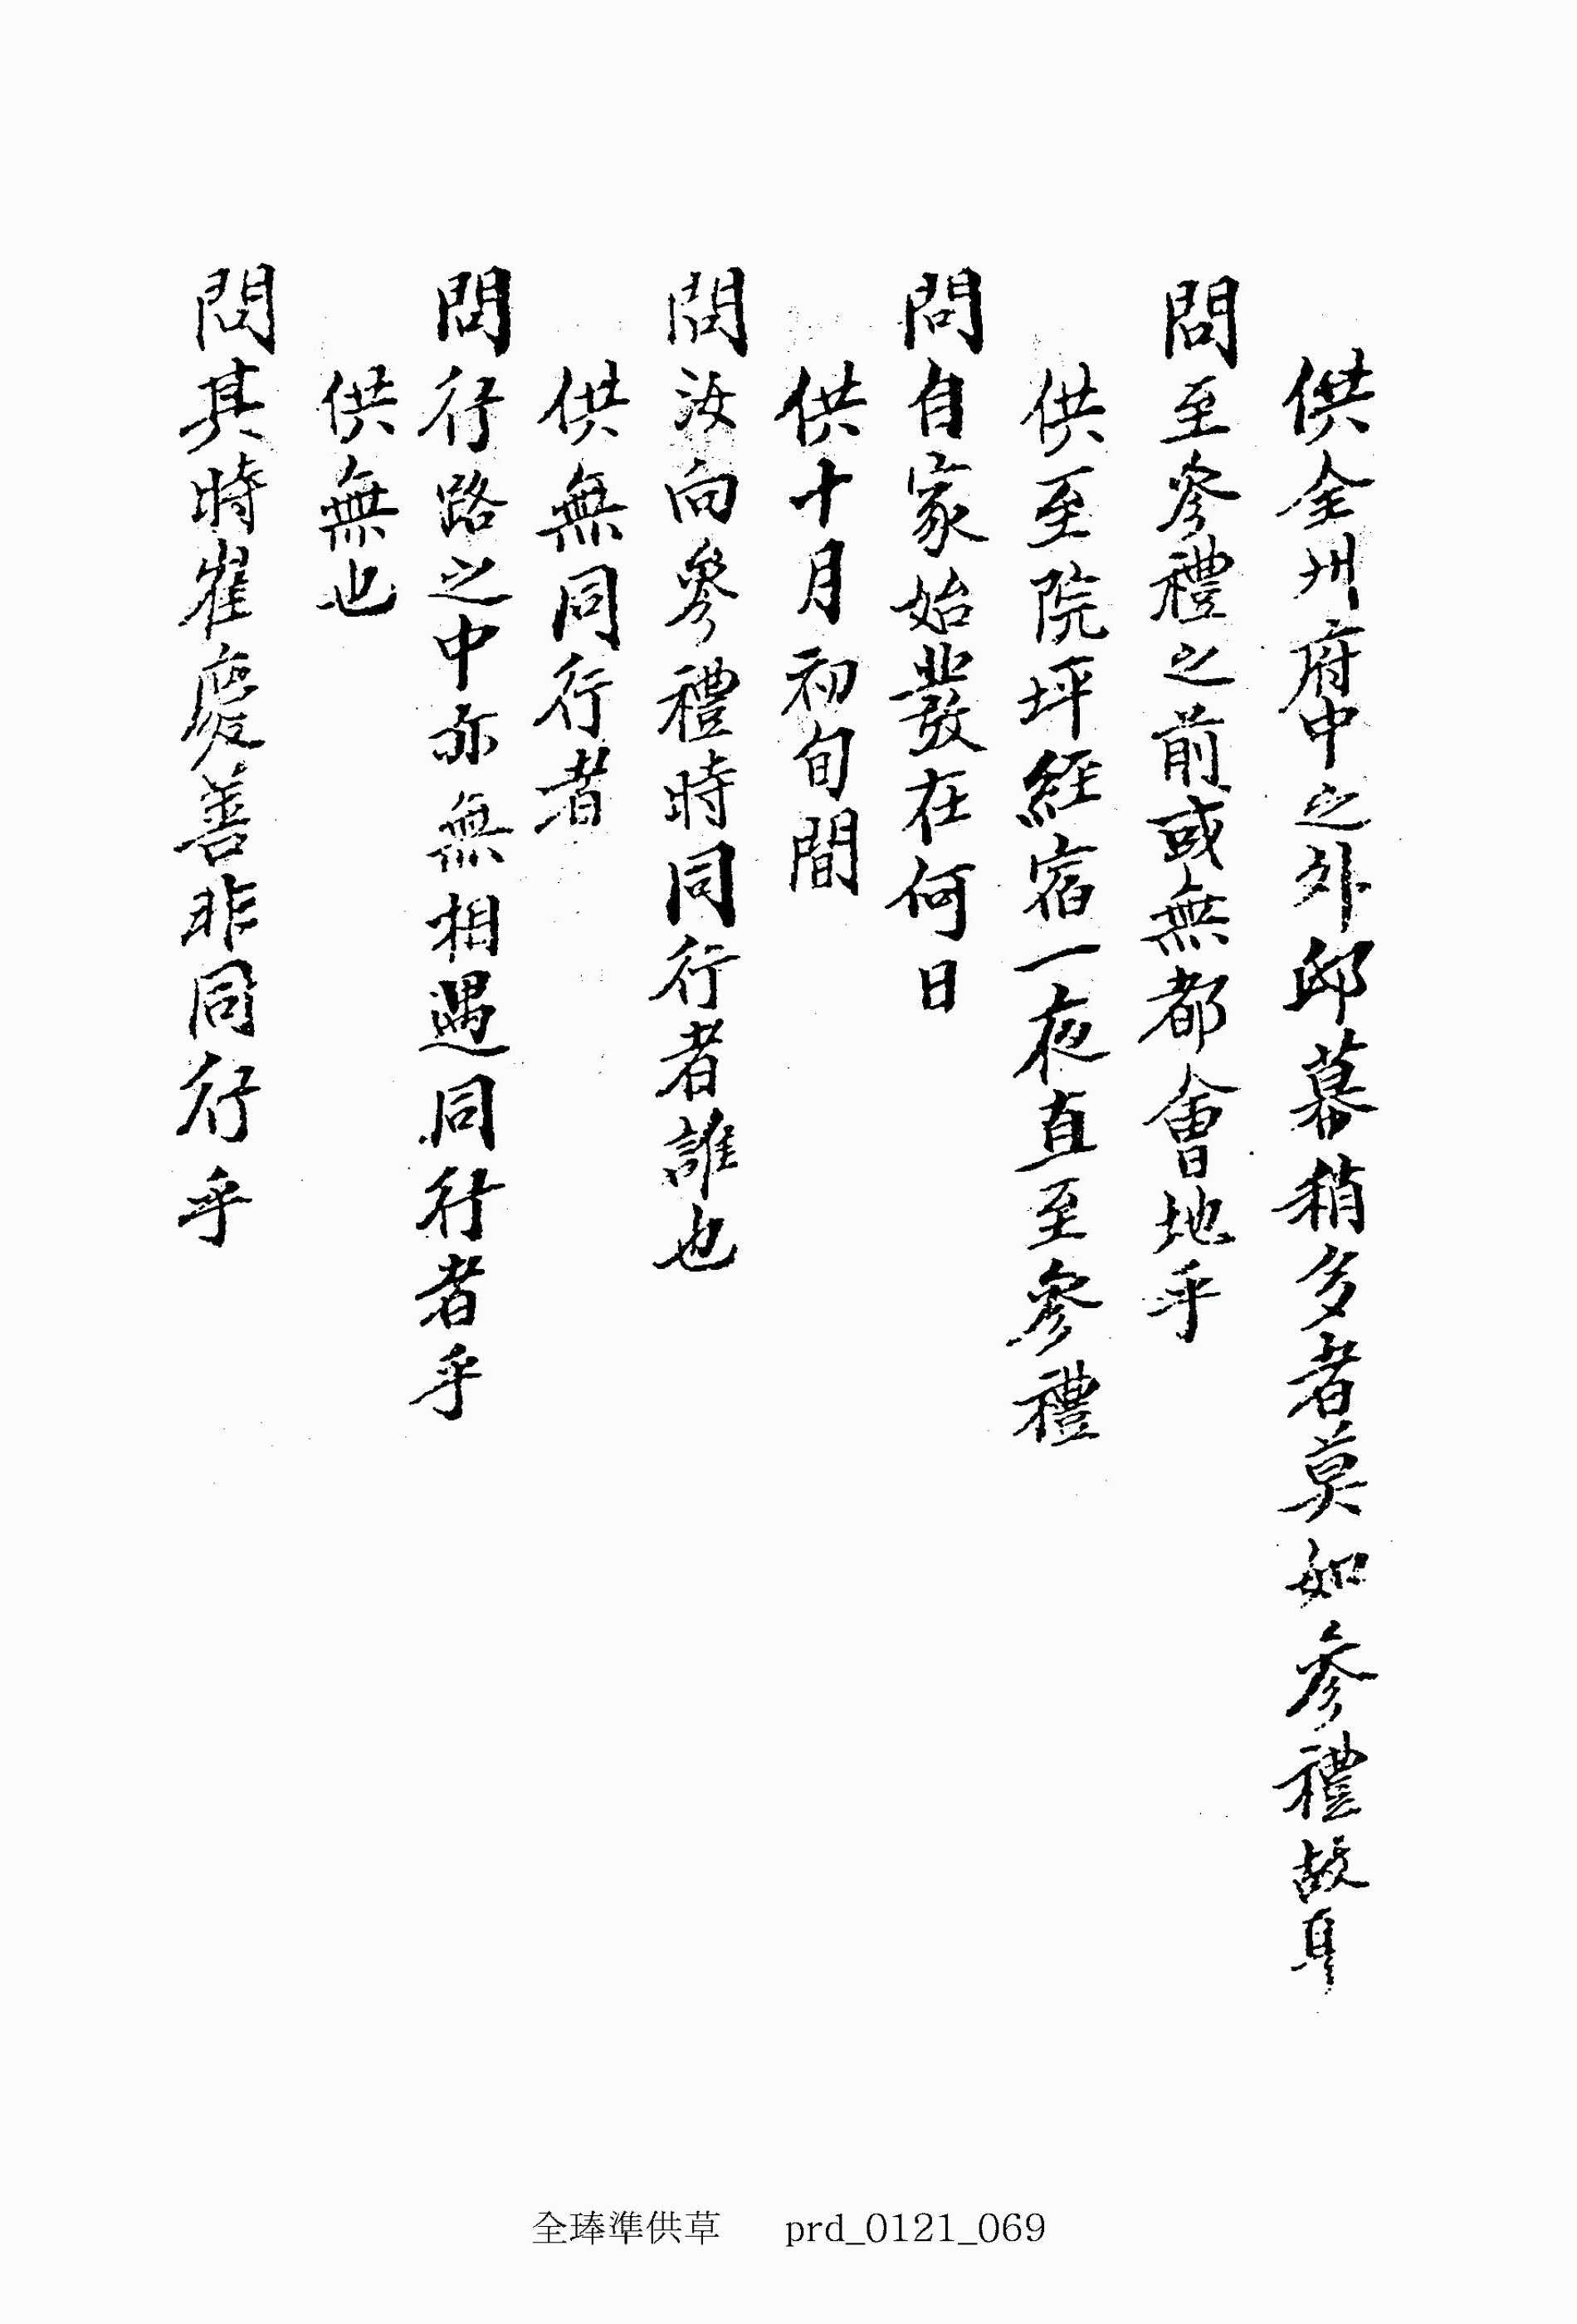 供全州府中之外邸幕稍多者莫如參禮故耳
問至參禮之前或無都會地乎
供至院坪經宿一夜直至參禮
問自家始發在何日
供十月初旬間
問汝向參禮時同行者誰也
供無同行者
問行路之中亦無相遇同行者乎
供無也
問其時崔慶善非同行乎
全琫準供草 prd_0121_069